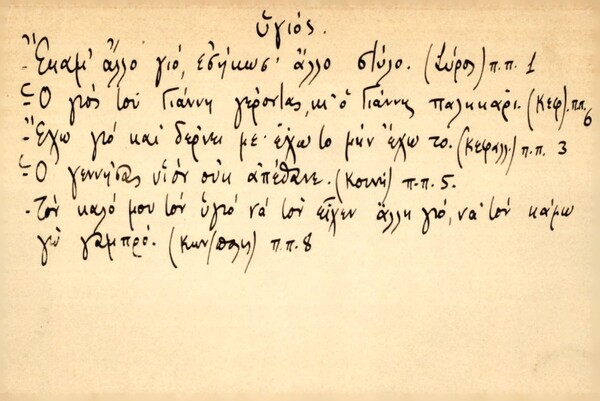 ὑγιός.
- Ἔκαμ' ἄλλο γιό, ἐσήκωσ' ἄλλο στύλο. (Σύρος) π.π. 1
- Ὁ γιός τοῦ Γιάννη γέροντας, κι' ὁ Γιάννης παληκάρι. (Κεφ.) π.π. 6
- Ἔχω γιό καί δέρνει με· ἔχω το μήν ἔχω το. (Κεφαλλ.) π.π. 3
- Ὁ γεννήσας υἱόν οὐκ ἀπέθανε. (Κοινή) π.π. 5.
- Τόν καλό μου τόν ὑγιό νά τόν εἶχεν ἄλλη γιό, νά τόν κάμω
γώ γαμπρό. (Κων/πολις) π.π. 8